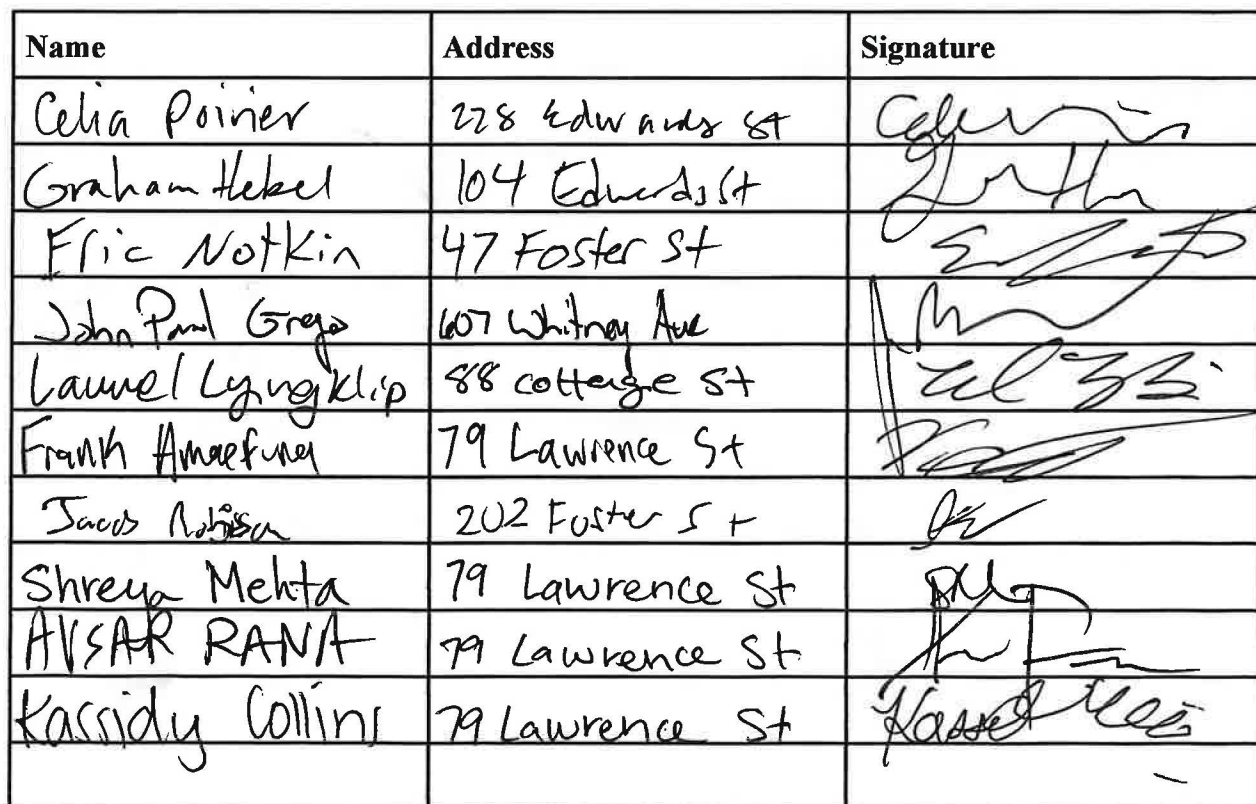 Name Address Signature
Celia Poirier 228 Edwards St
Graham Hebel 104 Edwards St
Eric Notkin 47 Foster St
John Paul 607 Whitney Ave
Laurel Lyngklip 88 cottage St
Frank Amaefuna 79 Lawrence St
Jacob Robison 202 Foster St
Shreya Mehta 79 Lawrence St
AVSAR RANA 79 Lawrence St
Kassidy Collins 79 Lawrence St